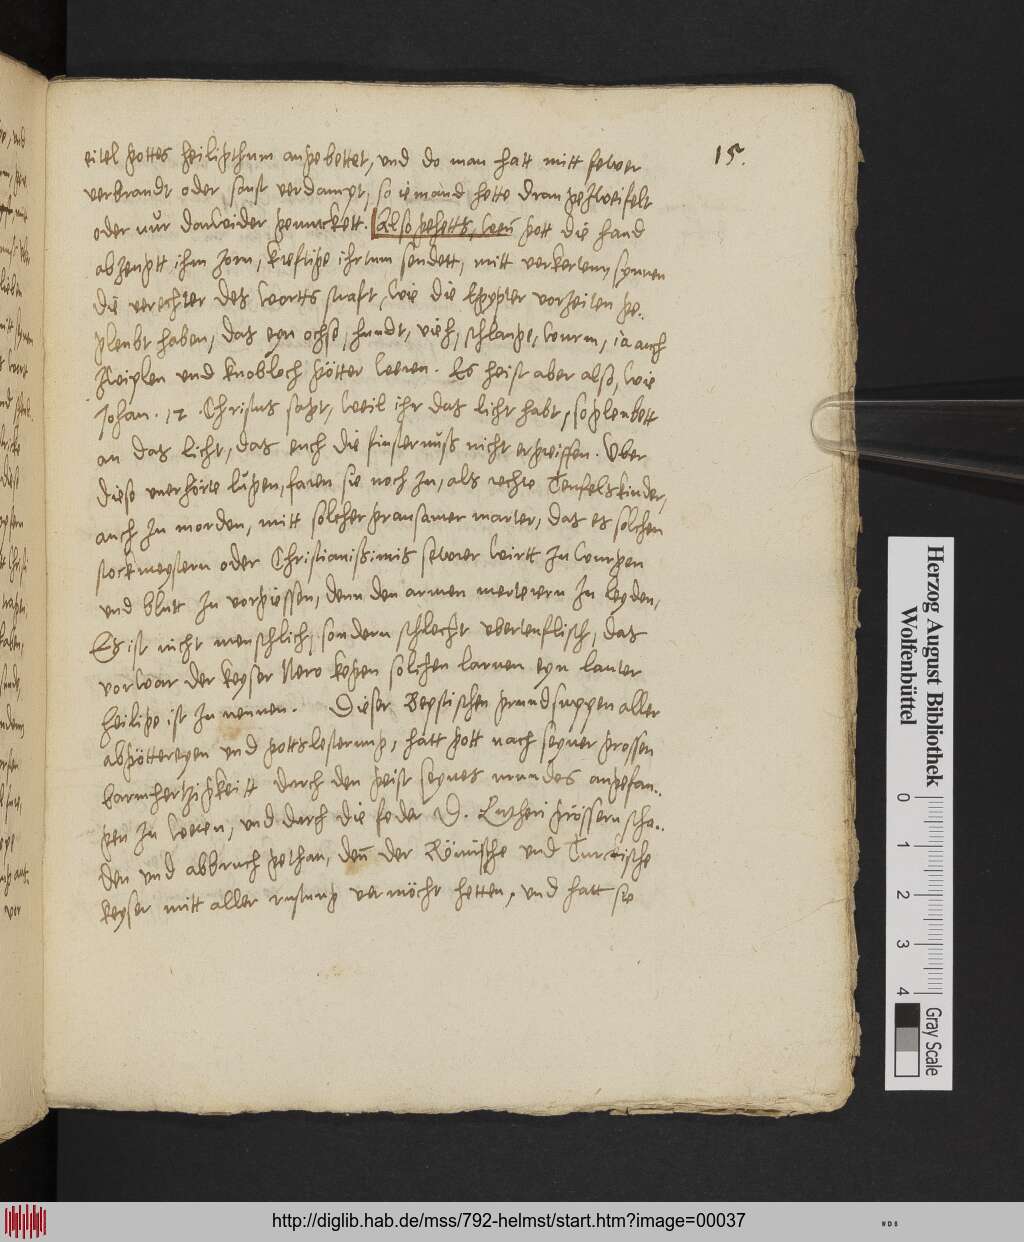 15.
eitel gottes heiligthum angebettet, und do man hatt mitt fewer
verbrandt oder sonst verdampt, so iemand hette dran gezweifelt
oder nůr dawider gemuckett. Also gehetts, weñ gott die hand
abzeugtt ihm zorn, kreftige ihrtum sendett, mitt verkertem synnen
die verechter des worts straft, wie die Egypter vorzeiten ge..
gleubt haben, das eyn ochse, hundt, vieh, schlange, wurm, ia auch
zwiplen und knobloch götter weren. Es heist aber also, wie
Johan. 12. Christus sagt, weil ihr das licht habt, so gleubett
an das licht, das euch die finsternuß nicht ergreiffen. Uber
diese unerhörte lůgen, faren sie noch zu, als rechte Teufelskinder,
auch zu morden, mitt solcher grausamer marter, das es solchen
stockmeystern oder Christianissimis sewrer wirtt zu wurgen
und blutt zu vorgiessen, denn den armen merterern zu leyden,
Es ist nicht menschlich, sondern schlecht uberteuflisch, das
vorwar der keyser Nero kegen solchen larven eyn lauter
heilige ist zu nennen. Dieser Bepstischen grundsuppen aller
abgöttereyen und gottslesterung, hatt gott nach seyner grossen
barmhertzigkeitt durch den geist seynes mundes angefan..
gen zu weren, und durch die feder D. Lutheri grössern scha..
den und abbruch gethan, deñ der Römische und Turckische
keyser mitt aller rustung vermöcht hetten, und hatt sie
Herzog August Bibliothek
Wolfenbüttel
0 1 2 3 4
Gray Scale
http://diglib.hab.de/mss/792-helmst/start.htm?image=00037